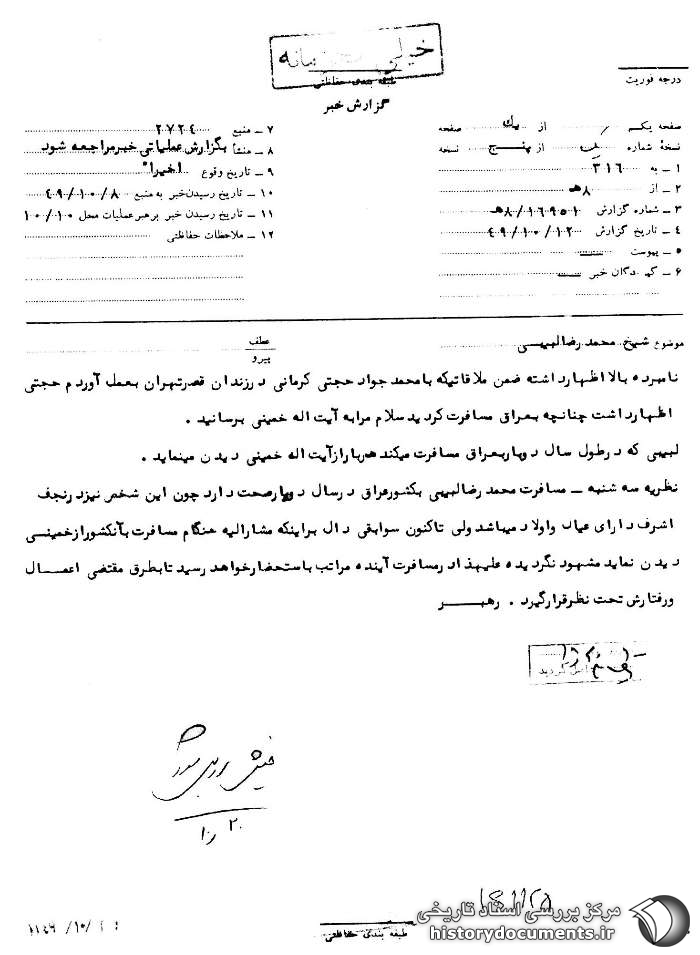 خیلی محرمانه
طبقه بندی حفاظتی
گزارش خبر
درجه فوریت
صفحه یکم از یک صفحه
نسخهٔ شماره از پنج نسخه
۱ ـ به ۳۱۶
۲ ـ از ۸هـ
۳ ـ شماره گزارش ۸/۱۶۹۵۱هـ
۴ ـ تاریخ گزارش ۴۹/۱۰/۱۲
۵ ـ پیوست
۶ ـ گیرندگان خبر
۷ ـ منبع ۲۷۲۴
۸ ـ منشأ بگزارش عملیاتی خبر مراجعه شود
۹ ـ تاریخ وقوع اخیرا"
۱۰ ـ تاریخ رسیدن خبر به منبع ۴۹/۱۰/۸
۱۱ ـ تاریخ رسیدن خبر برهبر عملیات محل ۱۰/۱۰
۱۲ ـ ملاحظات حفاظتی
موضوع شیخ محمد رضا لبیبی
عطف
پیرو
نامبرده بالا اظهار داشته ضمن ملاقاتیکه با محمد جواد حجتی کرمانی در زندان قصر تهران بعمل آوردم حجتی
اظهار داشت چنانچه بعراق مسافرت کردید سلام مرا به آیت اله خمینی برسانید .
لبیبی که در طول سال دوبار بعراق مسافرت میکند هر بار از آیت اله خمینی دیدن مینماید .
نظریه سه شنبه ـ مسافرت محمد رضا لبیبی بکشور عراق در سال دوبار صحت دارد چون این شخص نیز در نجف
اشرف دارای عیال و اولاد میباشد ولی تاکنون سوابقی دال بر اینکه مشارالیه هنگام مسافرت بآنکشور از خمینی
دیدن نماید مشهود نگردیده علیهذا در مسافرت آینده مراتب باستحضار خواهد رسید تا بطرق مقتضی اعمال
و رفتارش تحت نظر قرار گیرد . رهبر
۲۰/۱۰
طبقه بندی حفاظتی
مرکز بررسی اسناد تاریخی
historydocuments.ir